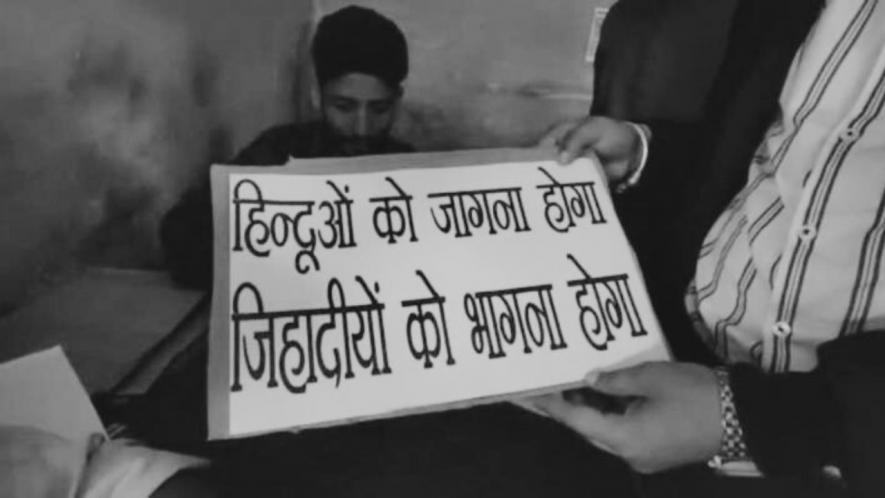 हिन्दूओं को जागना होगा
जिहादीयों को भागना होगा